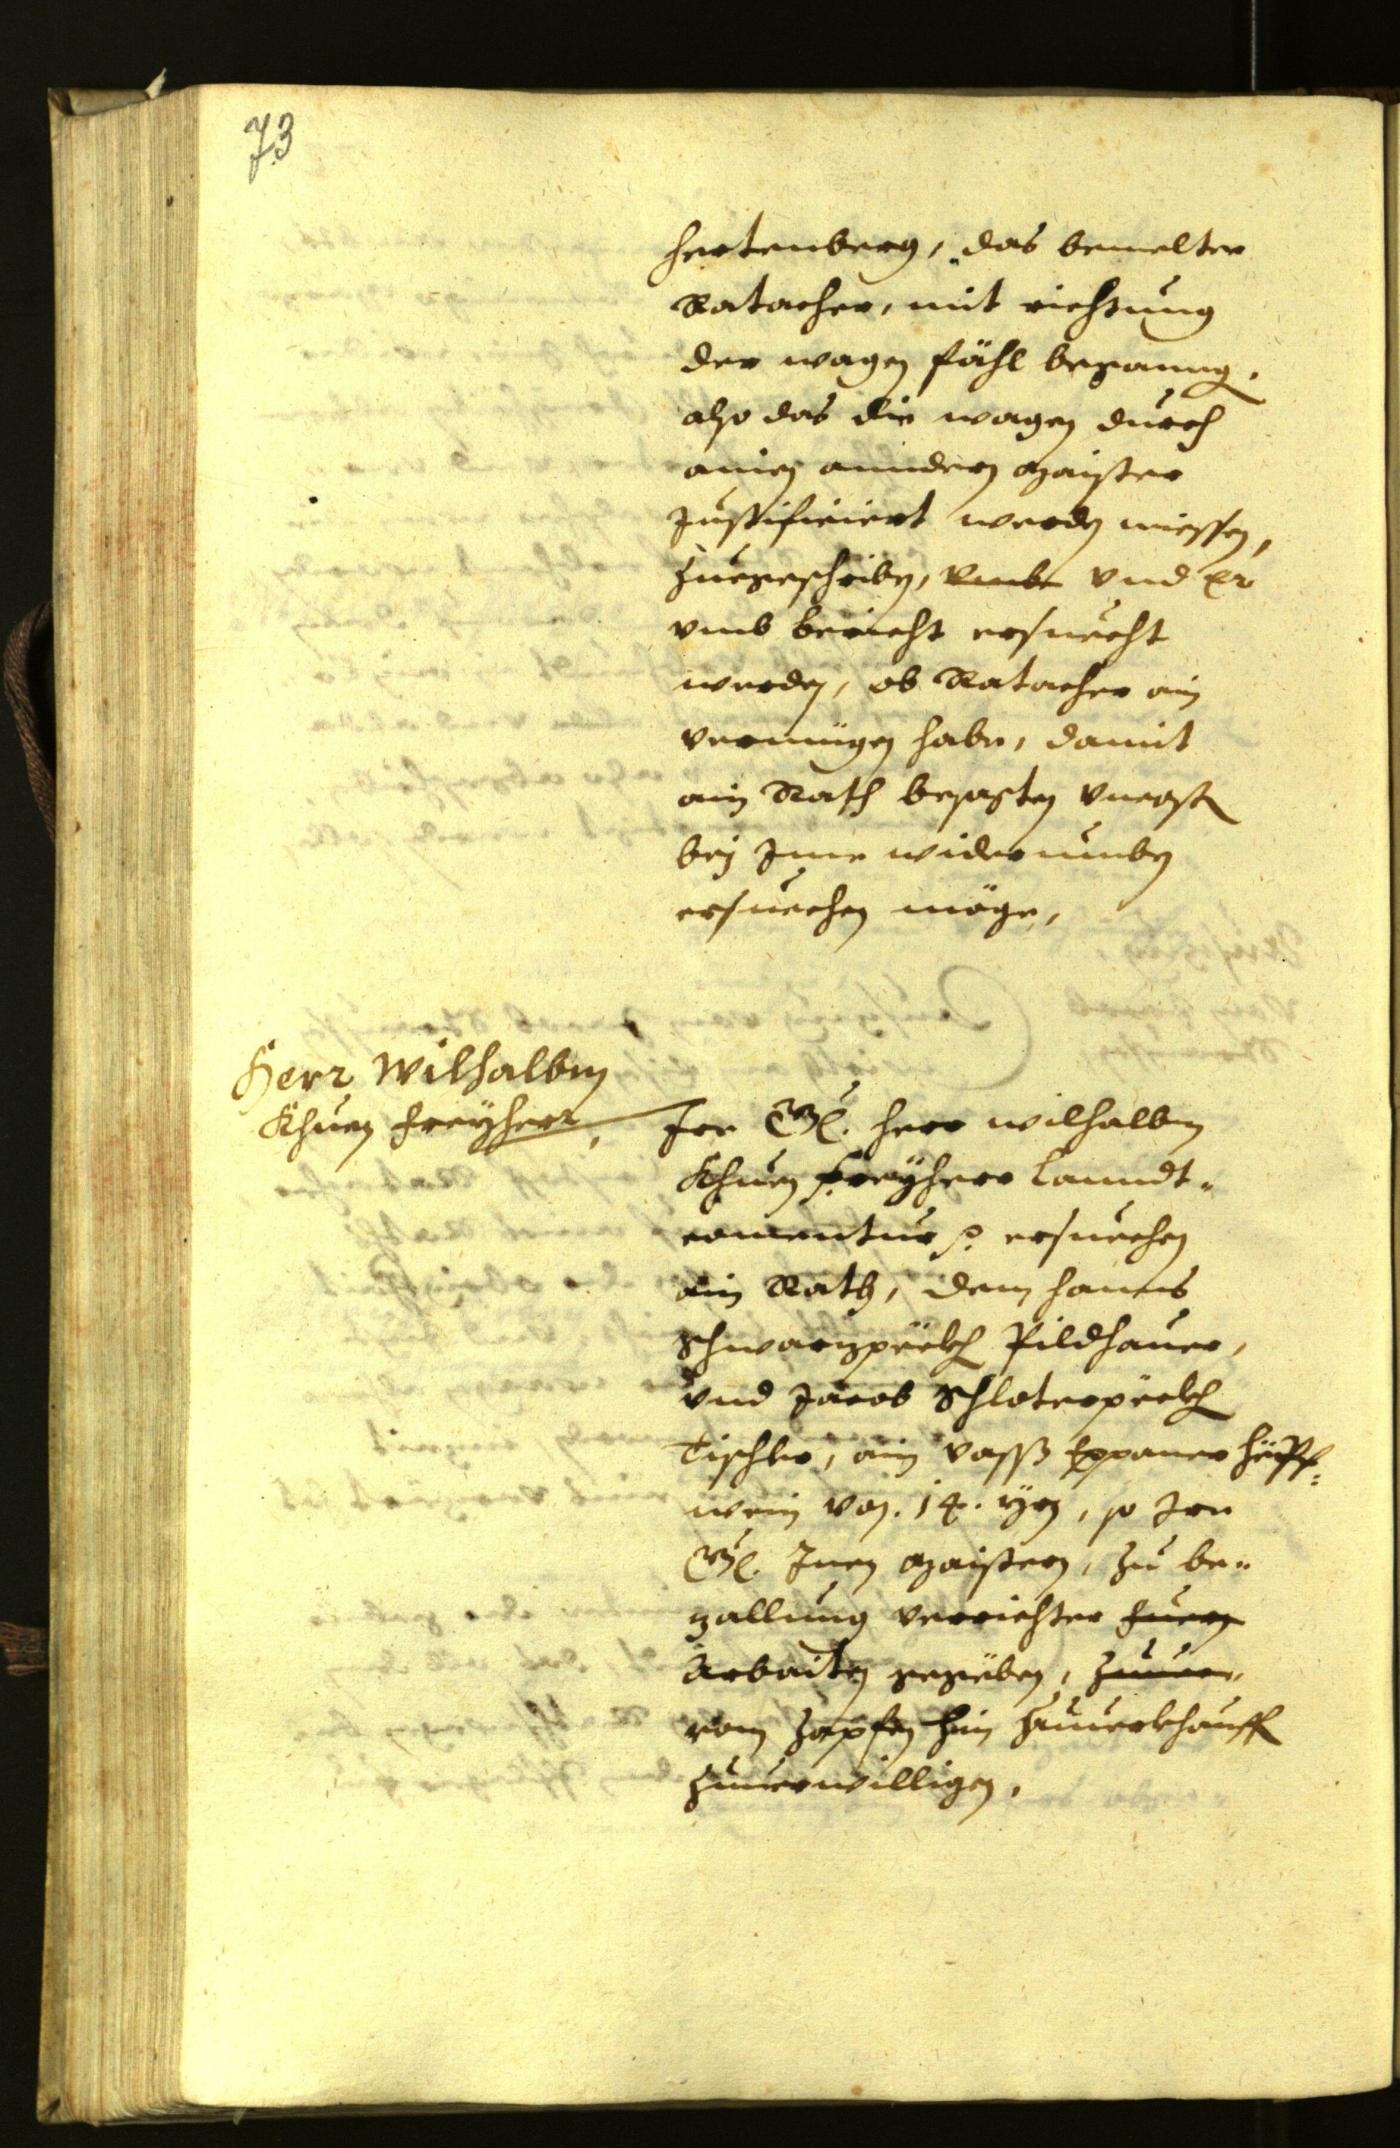 73
hertenberg, das bemelter
Ratacher, mit richtung
der wagen fähl begangen,
also das die wagen durch
ainen anndern maister
Justificiert werden miessen,
zuegeschriben, vmb vnd Er
vmb bericht ersuecht
werden, ob Ratacher ain
vermügen habe, damit
ain Rath besagten vncost
bey Ime widerumben
ersuechen möge,
Herr Wilhalbm
Khuen Freyherr,
Ire Gl. herr wilhalbm
Khuen Freyherr Lanndt-
comentur p. ersuechen
ain Rath, dem hanns
Schwarzpeckh Pildhauer,
vnd Jacob Schloterpeckh
Tischler, ain vassz Eppaner
wein von .14. yrn, so Ire
Gl. Inen maistern, zu be-
zallung verrichter
Arbaiten gegeben,
vom zapfen hin zuuerkhauffen
zuuerwilligen,